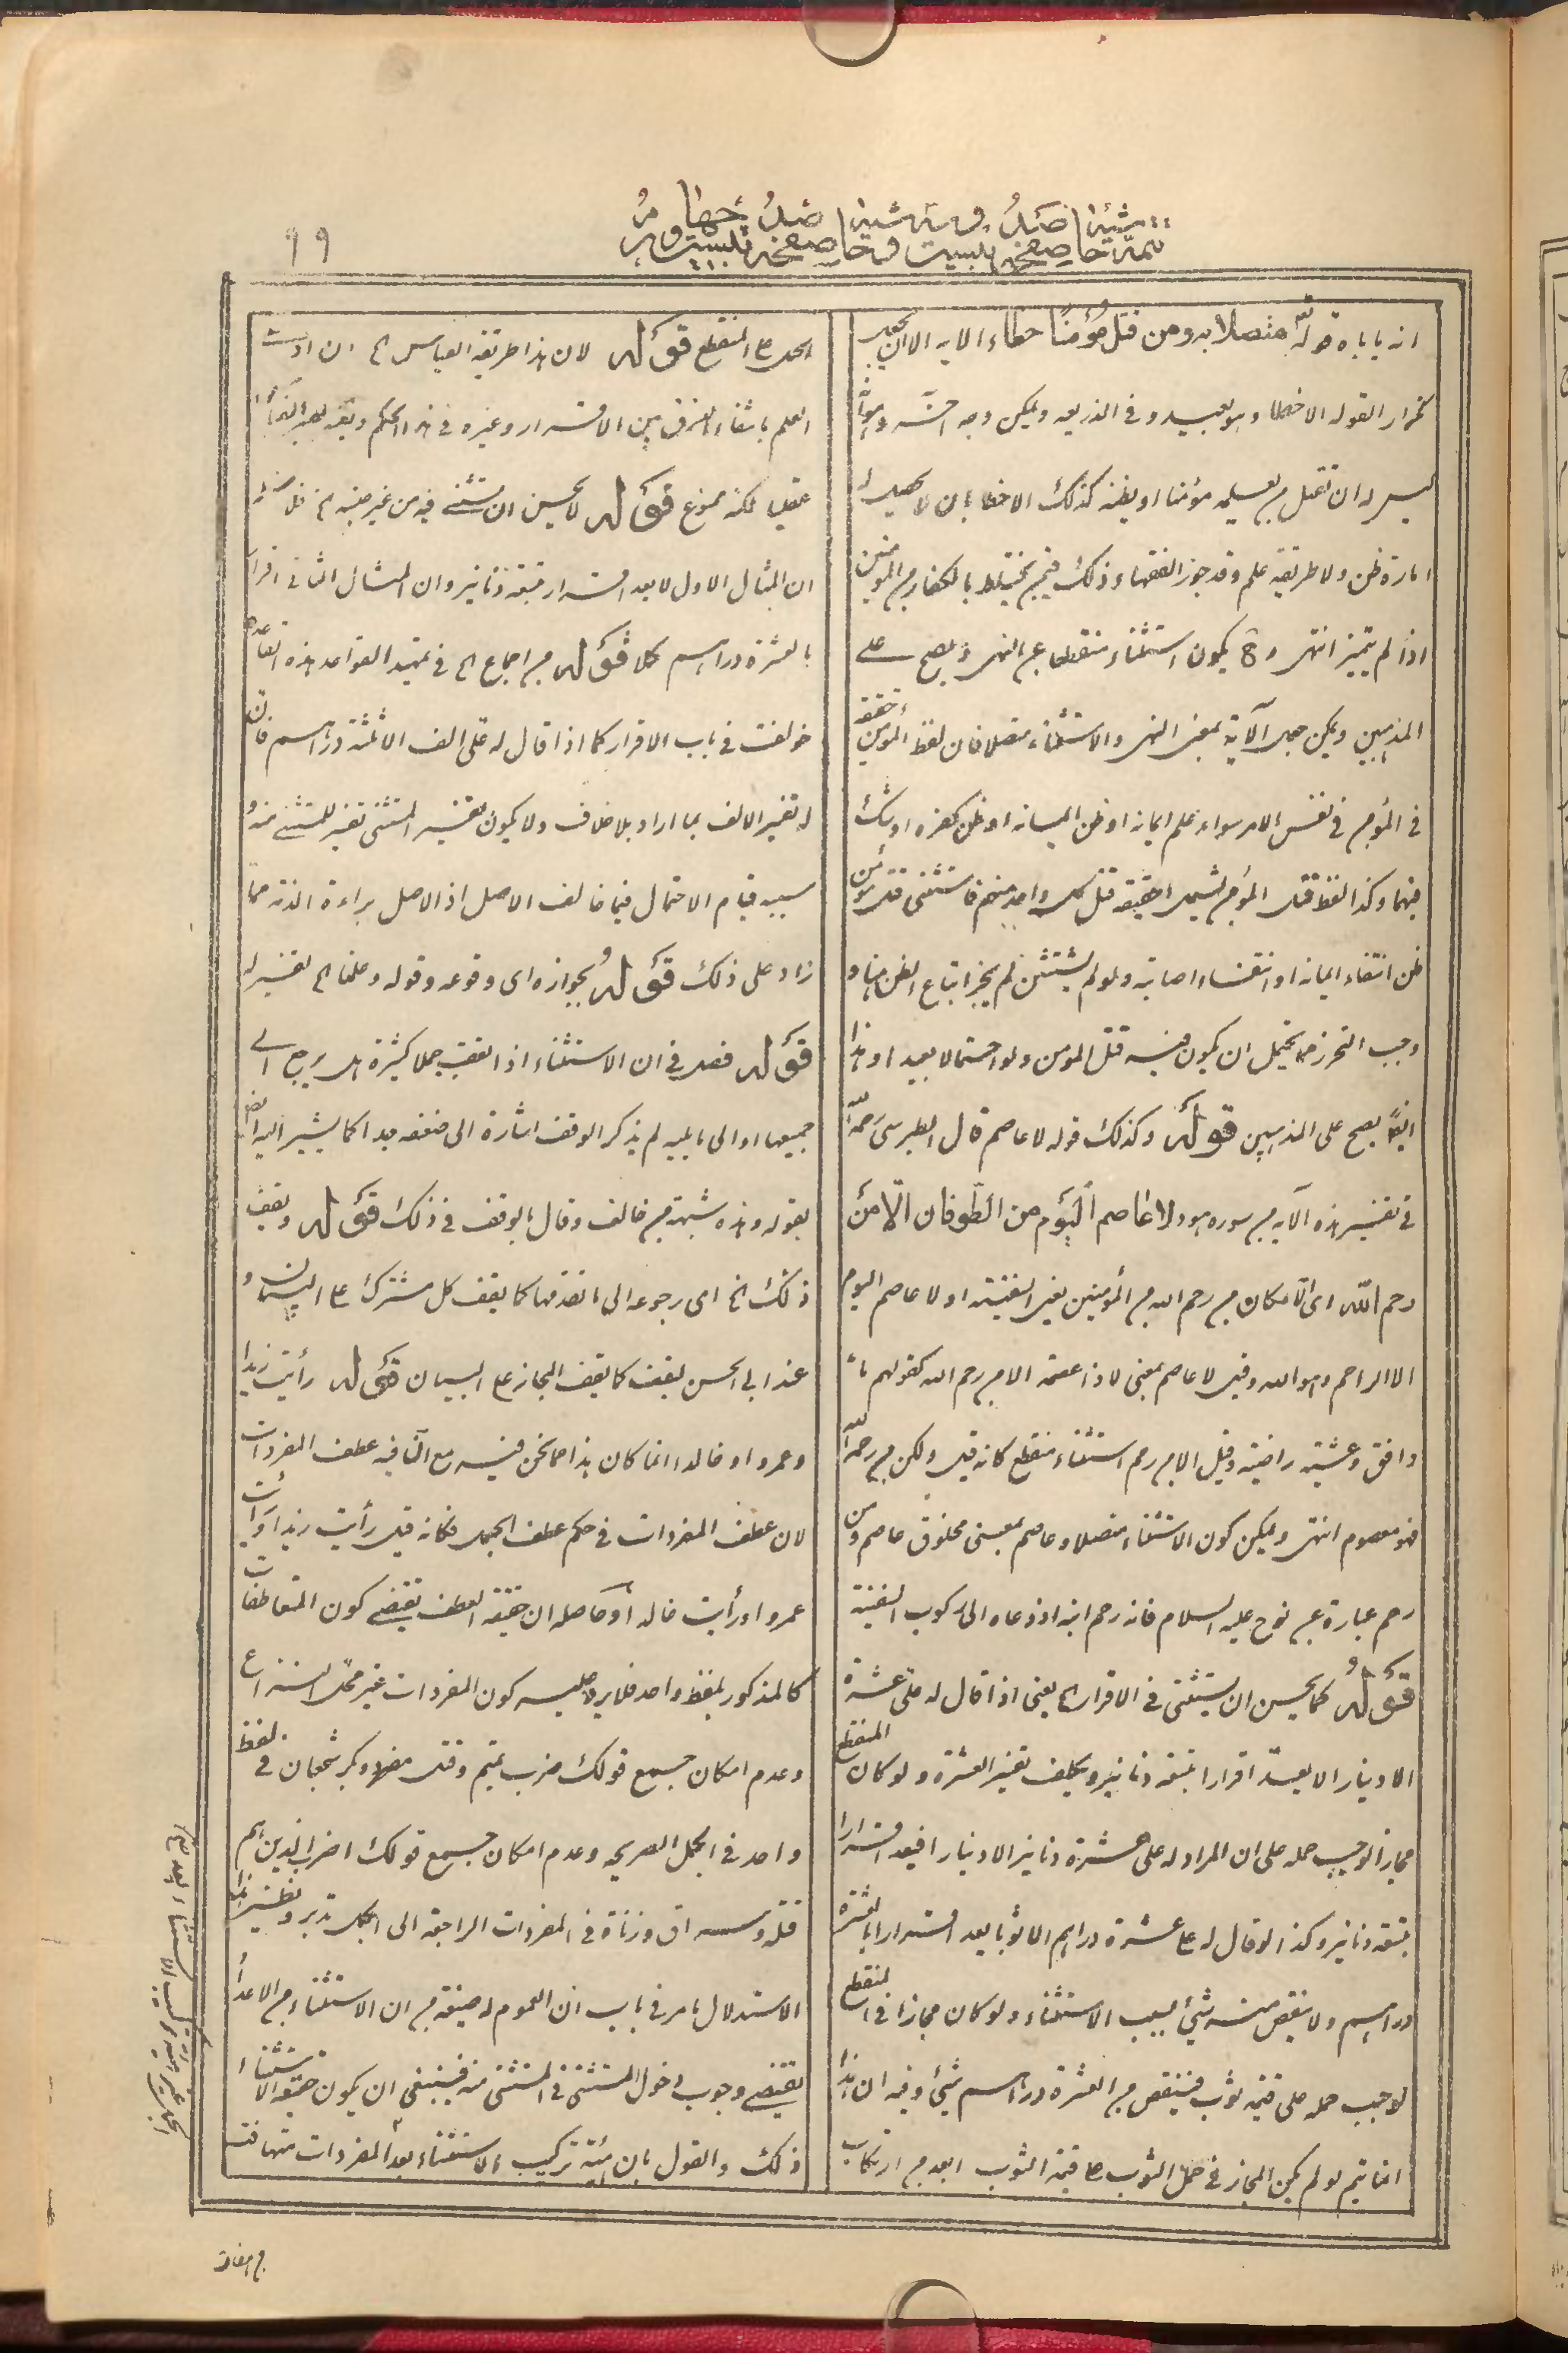 99
انه ياباه قوله متصلا به ومن قتل مؤمنا خطاء الايه الا ان يجعل
تكرار القوله الا خطاء وهو بعيد وفى الذريعه ويمكن وجه اخر وهو
ليس له ان تقتل من يعلمه مؤمنا او يظنه كذلك الا خطا بان لا يحصل له
امارة ظن ولا طريقة علم وقد جوز الفقهاء ذلك فيمن يختلط بالكفار من المؤمنين
اذا لم يتميز انتهى وح يكون استثناء منقطعا عن النهى ويصح على
المذهبين ويمكن حمل الآية بمعنى النهى والاستثناء متصلا فان لفظ المؤمن حقيقة
فى المؤمن فى نفس الامر سواء علم ايمانه او ظن ايمانه او ظن كفره او شك
فيهما وكذا لفظ قتل المؤمن يشمل حقيقة قتل كل واحد منهم فاستثنى قتل مؤمن
ظن انتفاء ايمانه او انتفاء اصابته ولو لم يستثن لم يجز اتباع الظن هنا و
وجب التحرز مما يحتمل ان يكون فيه قتل المؤمن ولو احتمالا بعيدا وهذا
ايضا يصح على المذهبين قوله وكذلك قوله لا عاصم قال الطبرسى رحمه الله
فى تفسير هذه الآيه من سوره هود لا عاصم اليوم من الطوفان الا من
رحم الله اى الا مكان من رحم الله من المؤمنين يعنى السفينة او لا عاصم اليوم
الا الراحم وهو الله وقيل لا عاصم بمعنى لا ذا عصمة الا من رحم الله كقولهم ماء
دافق وعيشة راضية وقيل الا من رحم استثناء منقطع كانه قيل ولكن من رحمه الله
فهو معصوم انتهى ويمكن كون الاستثناء متصلا وعاصم بمعنى مخلوق عاصم ومن
رحم عبارة عن نوح عليه السلام فانه رحم ابنه اذ دعاه الى ركوب السفينة
قوله كما يحسن ان يستثنى فى الاقرار الخ يعنى اذا قال له على عشرة
الا دينارا لا يعد اقرارا بتسعة دنانير ويكلف تفسير العشرة ولو كان المنقطع
مجازا لوجب حمله على ان المراد له على عشرة دنانير الا دينارا فيعد اقرارا
بتسعة دنانير وكذا لو قال له على عشرة دراهم الا ثوبا يعد اقرارا بالعشرة
دراهم ولا ينقص منه شئ بسبب الاستثناء ولو كان مجازا فى المنقطع
لوجب حمله على قيمة ثوب فينقص من العشرة دراهم شئ وفيه ان هذا
انما يتم لو لم يكن المجاز فى حمل الثوب على قيمة الثوب ابعد من ارتكاب
على المنقطع قوله لان هذا طريقة القياس الخ ان ادعيت
العلم بانتفاء الفرق بين الاقرار وغيره فى هذا الحكم
عقليا لكنه ممنوع قوله لا يحسن ان يستثنى فيه من غير جنسه الخ
ان المثال الاول لا يعد اقرار بتسعة دنانير وان المثال الثانى اقرار
بالعشرة دراهم كلا قوله من اجماع الخ فى تمهيد القواعد هذه القاعدة
خولفت فى باب الاقرار كما اذا قال له على الف الا ثلثة دراهم فان
له تفسير الالف بما اراد بلا خلاف ولا يكون تفسير المستثنى تفسير للمستثنى منه و
سببه قيام الاحتمال فيما خالف الاصل اذ الاصل براءة الذمة مما
زاد على ذلك قوله بجوازه اى وقوعه وقوله وعلمنا الخ تفسير له
قوله فصل فى ان الاستثناء اذا تعقب جملا كثيرة هل يرجع الى
جميعها او الى ما يليه لم يذكر الوقف اشارة الى ضعفه جدا كما يشير اليه ايضا
بقوله وهذه شبهة من خالف وقال بالوقف فى ذلك قوله ويقف
ذلك الخ اى رجوعه الى ما تقدمها كما يقف كل مشترك على البيان و
عند ابى الحسن يقف كما يقف المجاز على البيان قوله رأيت زيدا
وعمروا وخالدا انما كان هذا مما نحن فيه مع ان فيه عطف المفردات
لان عطف المفردات فى حكم عطف الجمل فكانه قيل رأيت زيدا ورأيت
عمروا ورأيت خالدا وحاصله ان حقيقة العطف تقتضى كون المتعاطفات
كالمذكور بلفظ واحد فلا يرد عليه كون المفردات غير محل النزاع
وعدم امكان جمع قولك ضرب تميم وقتل مضر وبكر شجعان فى لفظ
واحد فى الجمل الصريحه وعدم امكان جمع قولك اضرب الذين هم
قتلة وسراق وزناة فى المفردات الراجعة الى الجمل تدبر ونظير هذا
الاستدلال ما مر فى باب ان العموم له صيغة من ان الاستثناء من الاعداد
يقتضى وجوب دخول المستثنى فى المستثنى منه فينبغى ان يكون حقيقة الاستثناء
ذلك والقول بان هيئة تركيب الاستثناء بعد المفردات متهافت